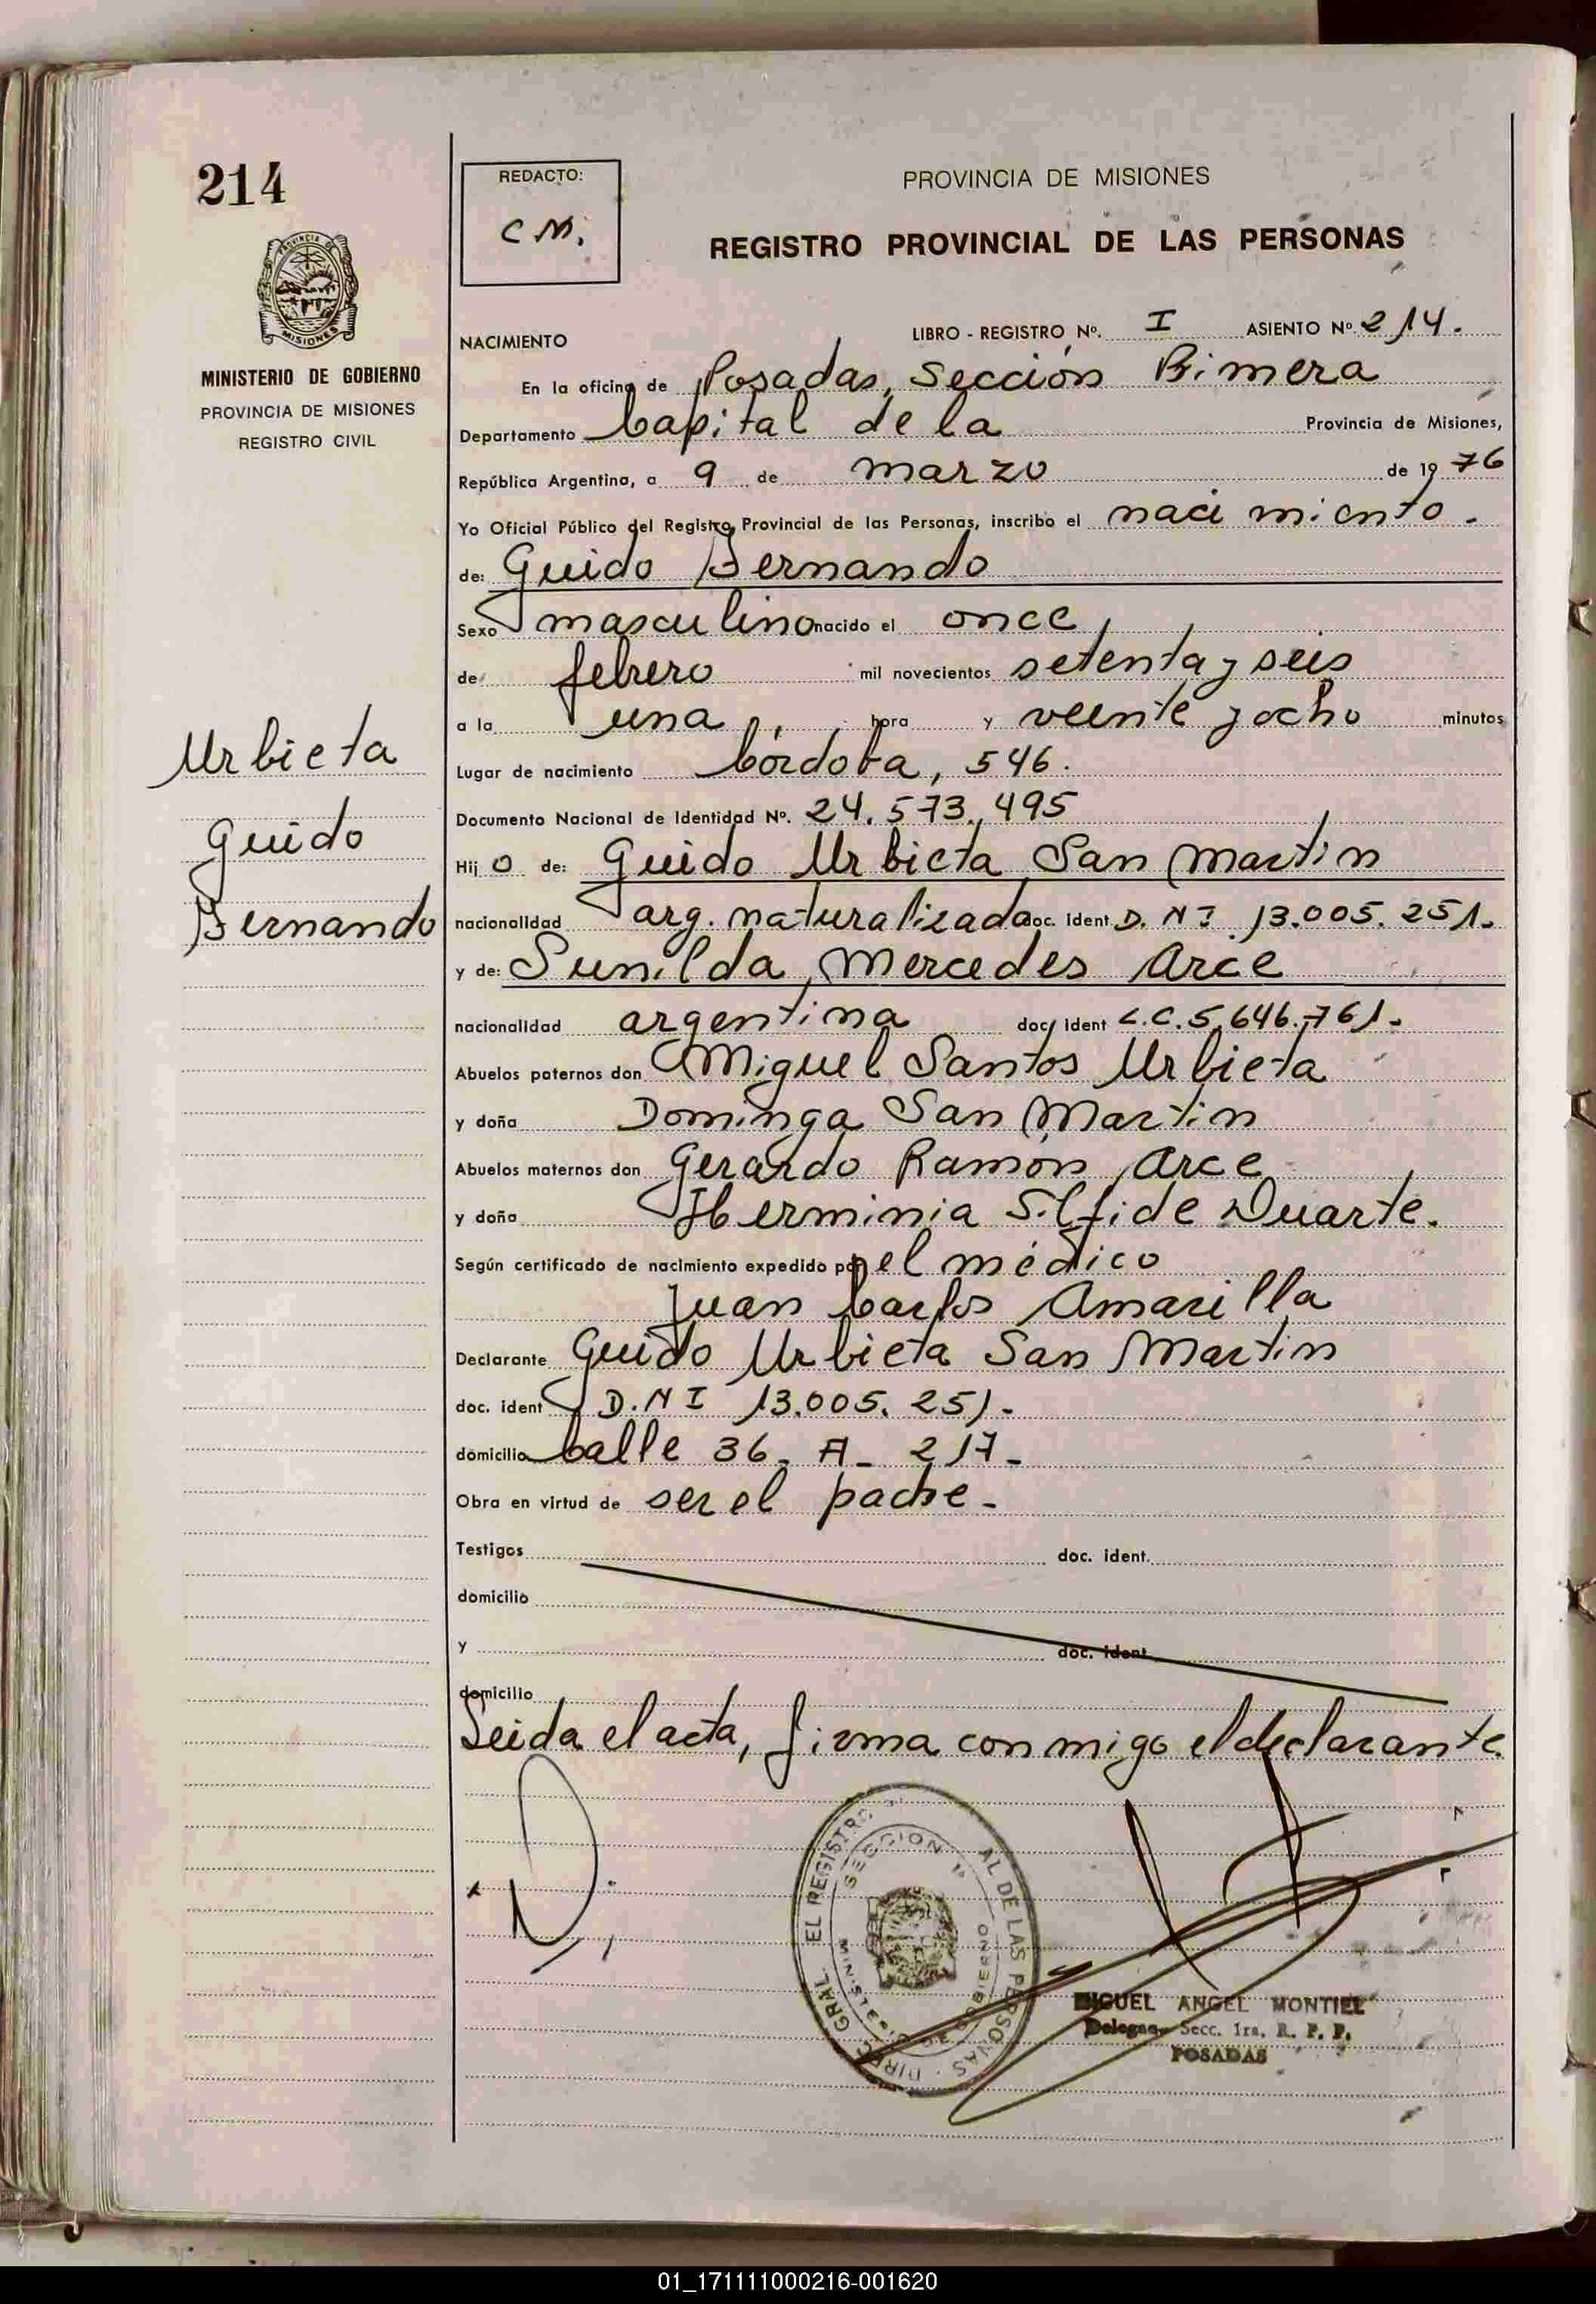 214
REDACTO:
C M.
PROVINCIA DE MISIONES
REGISTRO PROVINCIAL DE LAS PERSONAS
PROVINCIA DE
MISIONES
MINISTERIO DE GOBIERNO
PROVINCIA DE MISIONES
REGISTRO CIVIL
NACIMIENTO LIBRO - REGISTRO Nº. I ASIENTO Nº 214.
En la oficina de Posadas, Sección Primera
Departamento Capital de la Provincia de Misiones,
República Argentina, a 9 de marzo de 1976
Yo Oficial Público del Registro Provincial de las Personas, inscribo el nacimiento.
de: Guido Fernando
Sexo masculino nacido el once
de febrero mil novecientos setenta y seis
a la una hora y veinte y ocho minutos
Urbieta
Lugar de nacimiento Córdoba, 546.
Documento Nacional de Identidad Nº. 24.573.495
Guido
Hijo de: Guido Urbieta San Martin
Fernando
nacionalidad arg. naturalizado doc. ident D. N I 13.005.251.
y de: Sunilda Mercedes Arce
nacionalidad argentina doc. ident L.C. 5.646.761.
Abuelos paternos don Miguel Santos Urbieta
y doña Dominga San Martin
Abuelos maternos don Gerardo Ramón Arce
y doña Herminia Silfide Duarte.
Según certificado de nacimiento expedido por el médico
Juan Carlos Amarilla
Declarante Guido Urbieta San Martin
doc. ident D. N I 13.005.251.-
domicilio Calle 36 - A - 217 -
Obra en virtud de ser el padre -
Testigos doc. ident.
domicilio
y doc. ident
domicilio
Leida el acta, firma conmigo el declarante
SECCION 1ª
MIGUEL ANGEL MONTIEL
Delegado Secc. 1ra. R. P. P.
POSADAS
01_171111000216-001620